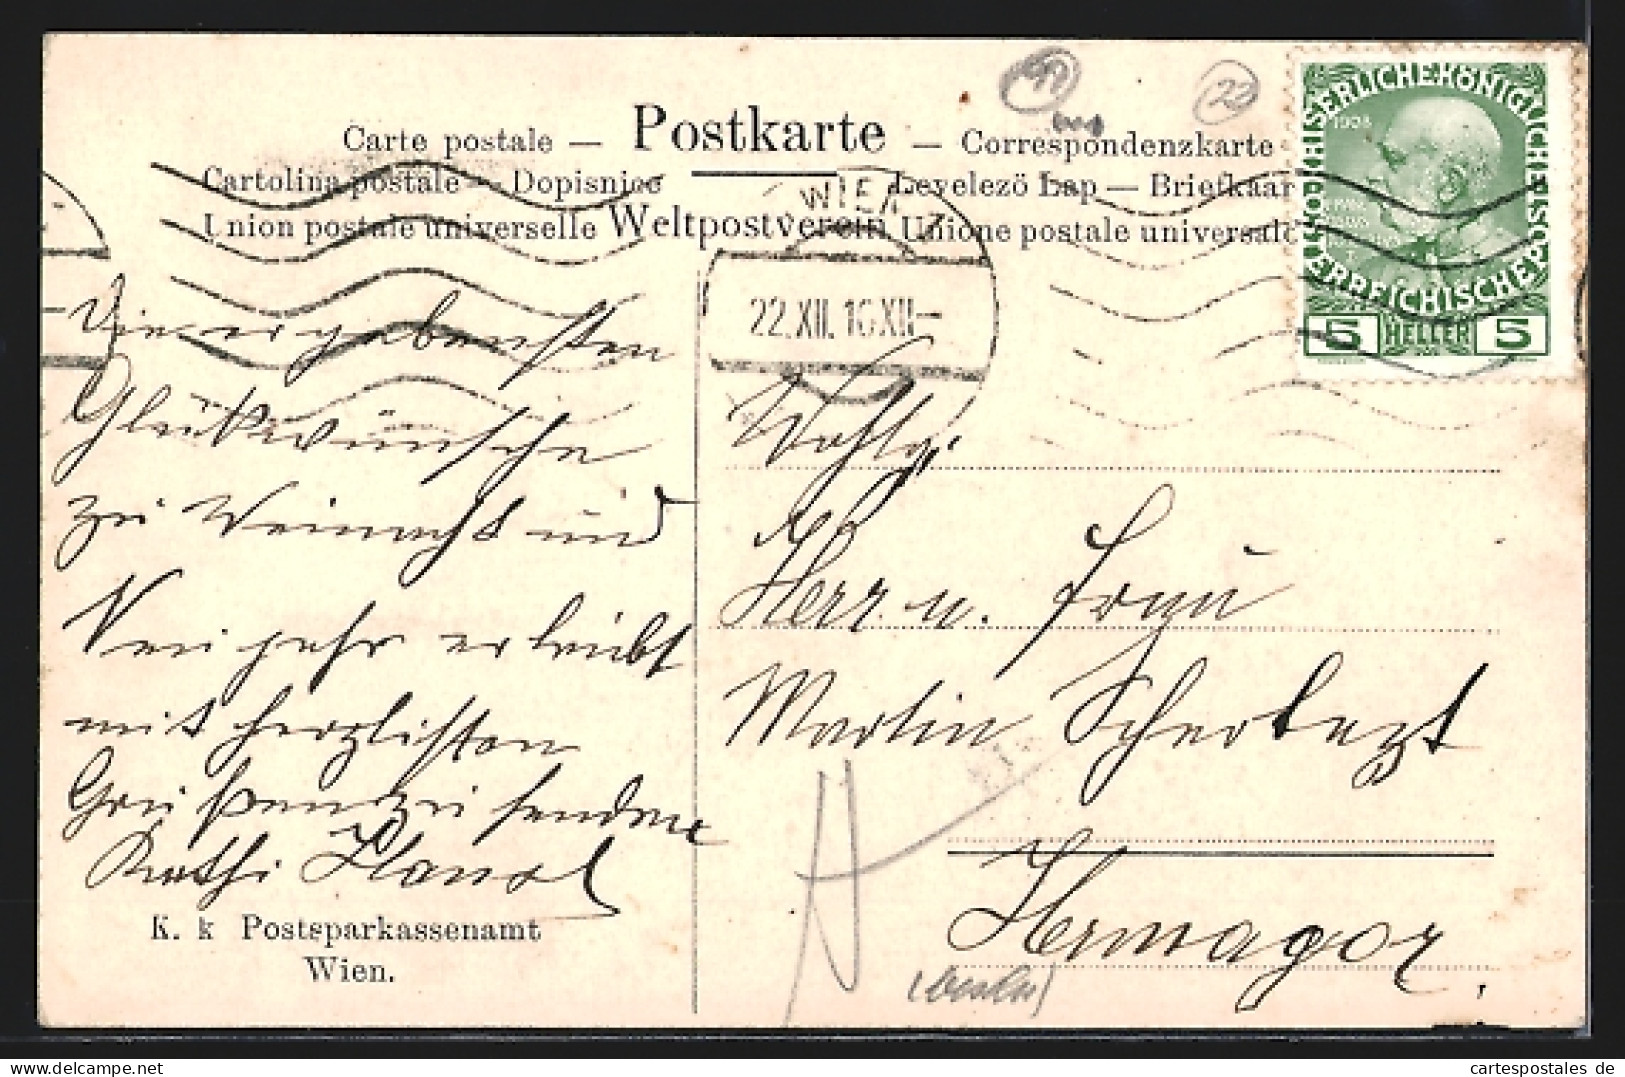 Carte postale — Postkarte — Correspondenzkarte
Cartolina postale — Dopisnice Levelezö Lap — Briefkaart
Union postale universelle Weltpostverein Unione postale universale
WIEN
22.XII.10 XII
KAISERLICHE KÖNIGLICHE ÖSTERREICHISCHE POST
1908
5 HELLER 5
22
Die ergebensten
Glückwünsche
zu Weinacht und
Neujahr erlaubt
mit herzlichsten
Grüßen zu senden
Kathi
K. k Postsparkassenamt
Wien.
Herr u. Frau
Martin
Hermagor.
www.cartespostales.de
cartespostales de